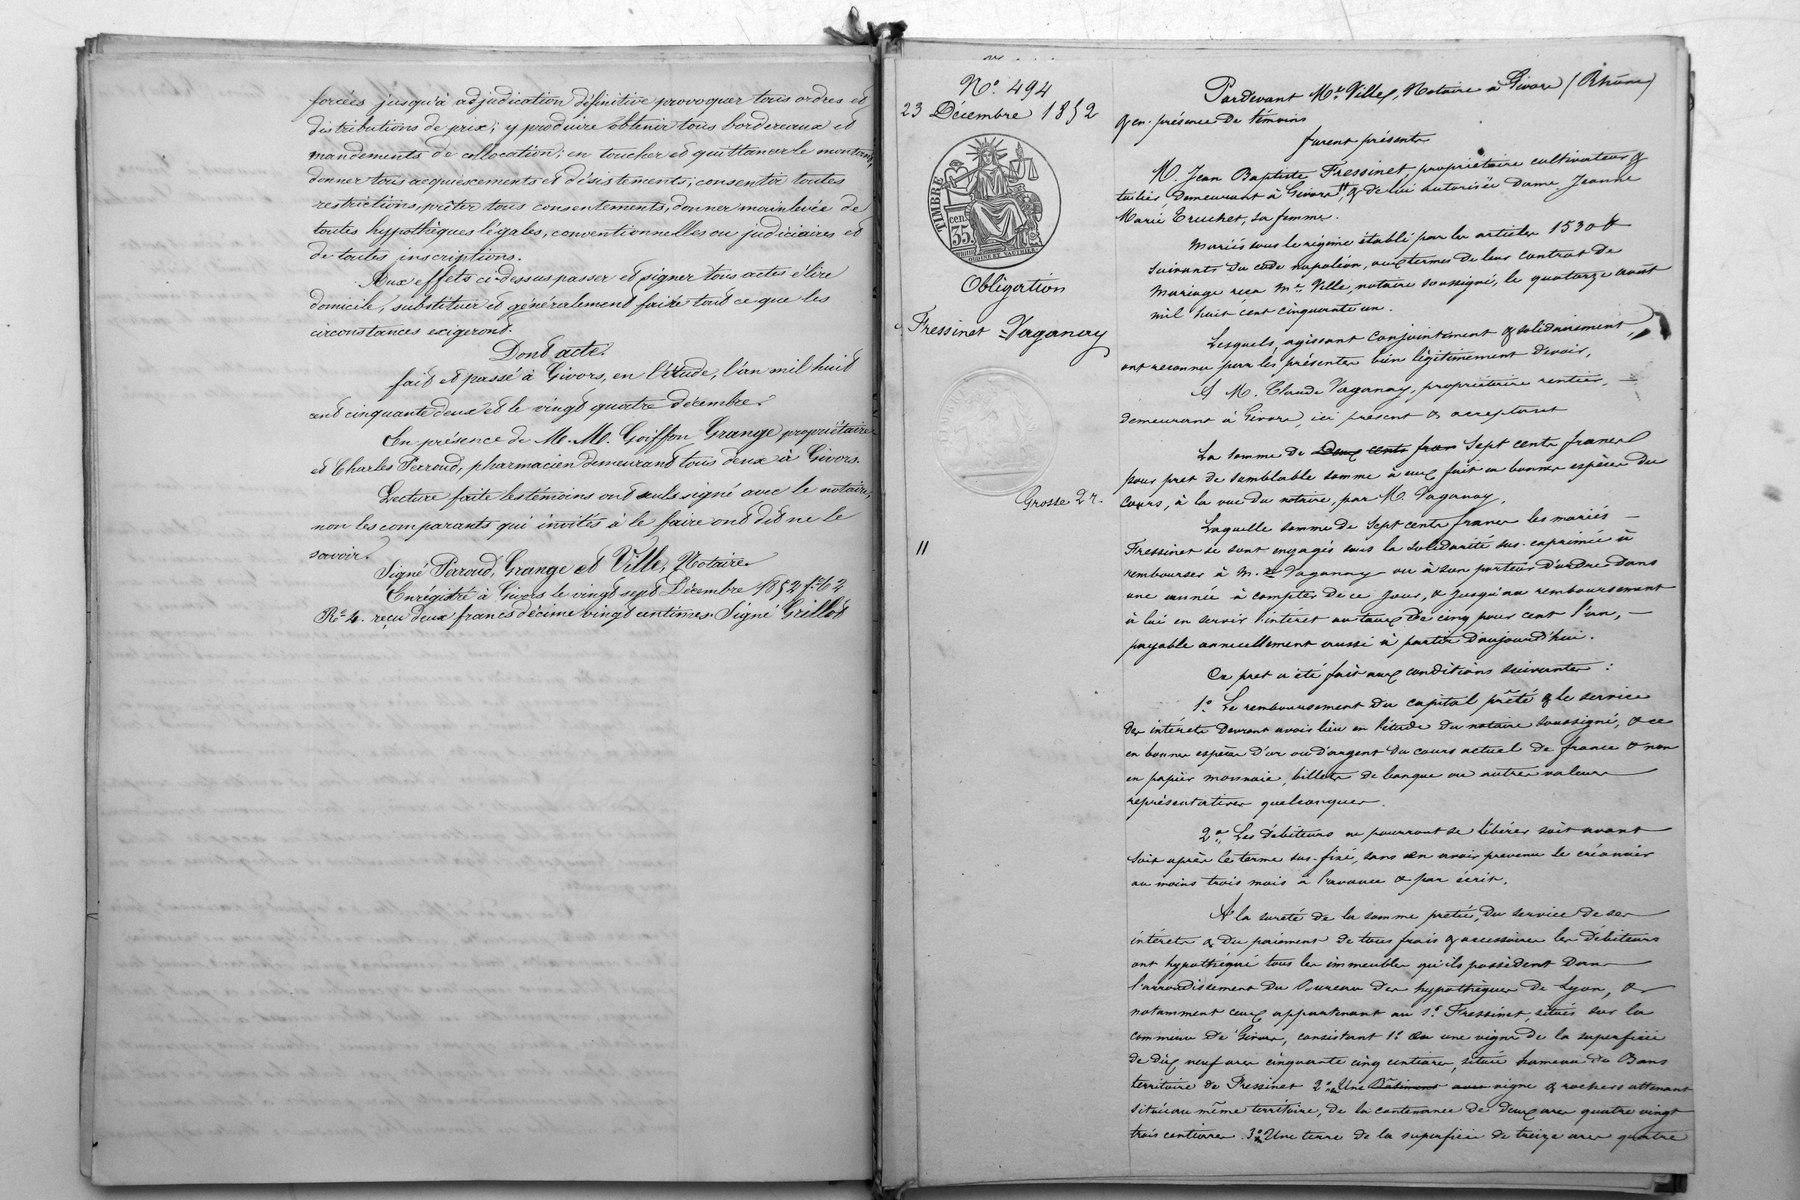 forcées jusqu'à adjudication définitive provoquer tous ordres et
distributions de prix; y produire obtenir tous bordereaux et
mandements de collocation; en toucher et quittancer le montant,
donner tous acquiescements et désistements; consentir toutes
restrictions, prêter tous consentements, donner mainlevée de
toutes hypothèques légales, conventionnelles ou judiciaires et
de toutes inscriptions.
Aux effets ci-dessus passer et signer tous actes élire
domicile, substituer et généralement faire tout ce que les
circonstances exigeront.
Dont acte.
fait et passé à Givors, en l'étude, l'an mil huit
cent cinquante deux et le vingt quatre décembre.
En présence de M. M. Goiffon Grange propriétaire
et Charles Perroud, pharmacien demeurant tous deux à Givors.
Lecture faite les témoins ont seuls signé avec le notaire,
non les comparants qui invités à le faire ont dit ne le
savoir.
Signé Perroud, Grange et Ville, Notaire.
Enregistré à Givors le vingt sept Décembre 1852 f° 62
R° 4. reçu deux francs décime vingt centimes. Signé Grillot
N° 494
23 Décembre 1852
TIMBRE
cen
35.
Obligation
Fressinet - Vaganay
Grosse 2 r.
Pardevant Me Ville, Notaire à Givors (Rhône)
& en présence de témoins
furent présents
M. Jean Baptiste Fressinet, propriétaire cultivateur &
tuilier, demeurant à Givors, & de lui autorisée Dame Jeanne
Marie Truchet, sa femme.
Mariés sous le régime établi par les articles 1530 &
suivants du code napoléon, aux termes de leur contrat de
mariage reçu Me Ville, notaire soussigné, le quatorze août
mil huit cent cinquante un.
Lesquels, agissant conjointement & solidairement,
ont reconnu par les présentes bien légitimement devoir,
A M. Claude Vaganay, propriétaire rentier, —
demeurant à Givors, ici présent & acceptant
La somme de Deux cents fran Sept cents francs
pour prêt de semblable somme à eux fait en bonnes espèces du
cours, à la vue du notaire, par M. Vaganay,
Laquelle somme de Sept cents francs les mariés —
Fressinet se sont engagés sous la solidarité sus-exprimée à
rembourser à M. Vaganay ou à son porteur d'ordre dans
une année à compter de ce jour, & jusqu'au remboursement
à lui en servir l'intérêt au taux de cinq pour cent l'an, —
payable annuellement aussi à partir d'aujourd'hui.
Ce pret a été fait aux conditions suivantes :
1° Le remboursement du capital prêté & le service
des intérêts devront avoir lieu en l'étude du notaire soussigné, & ce
en bonnes espèces d'or ou d'argent du cours actuel de france & non
en papier monnaie, billets de banque ou autres valeurs
représentatives quelconques.
2° Les débiteurs ne pourront se libérer soit avant
soit après le terme sus-fixé, sans en avoir prevenu le créancier
au moins trois mois à l'avance & par écrit.
A la sureté de la somme pretée, du service de ses
intérêts & du paiement de tous frais & accessoires les débiteurs
ont hypothéqué tous les immeubles qu'ils possèdent dans
l'arrondissement du Bureau des hypothèques de Lyon, &
notamment ceux appartenant au Sr Fressinet, situés sur la
commune de Givors, consistant 1° en une vigne de la superficie
de dix neuf ares cinquante cinq centiares, située hameau du Bans
territoire de Fressinet 2° Une Bâtiment avec vigne & rochers attenant
située au même territoire, de la contenance de deux ares quatre vingt
trois centiares 3° Une terre de la superficie de treize ares quatre